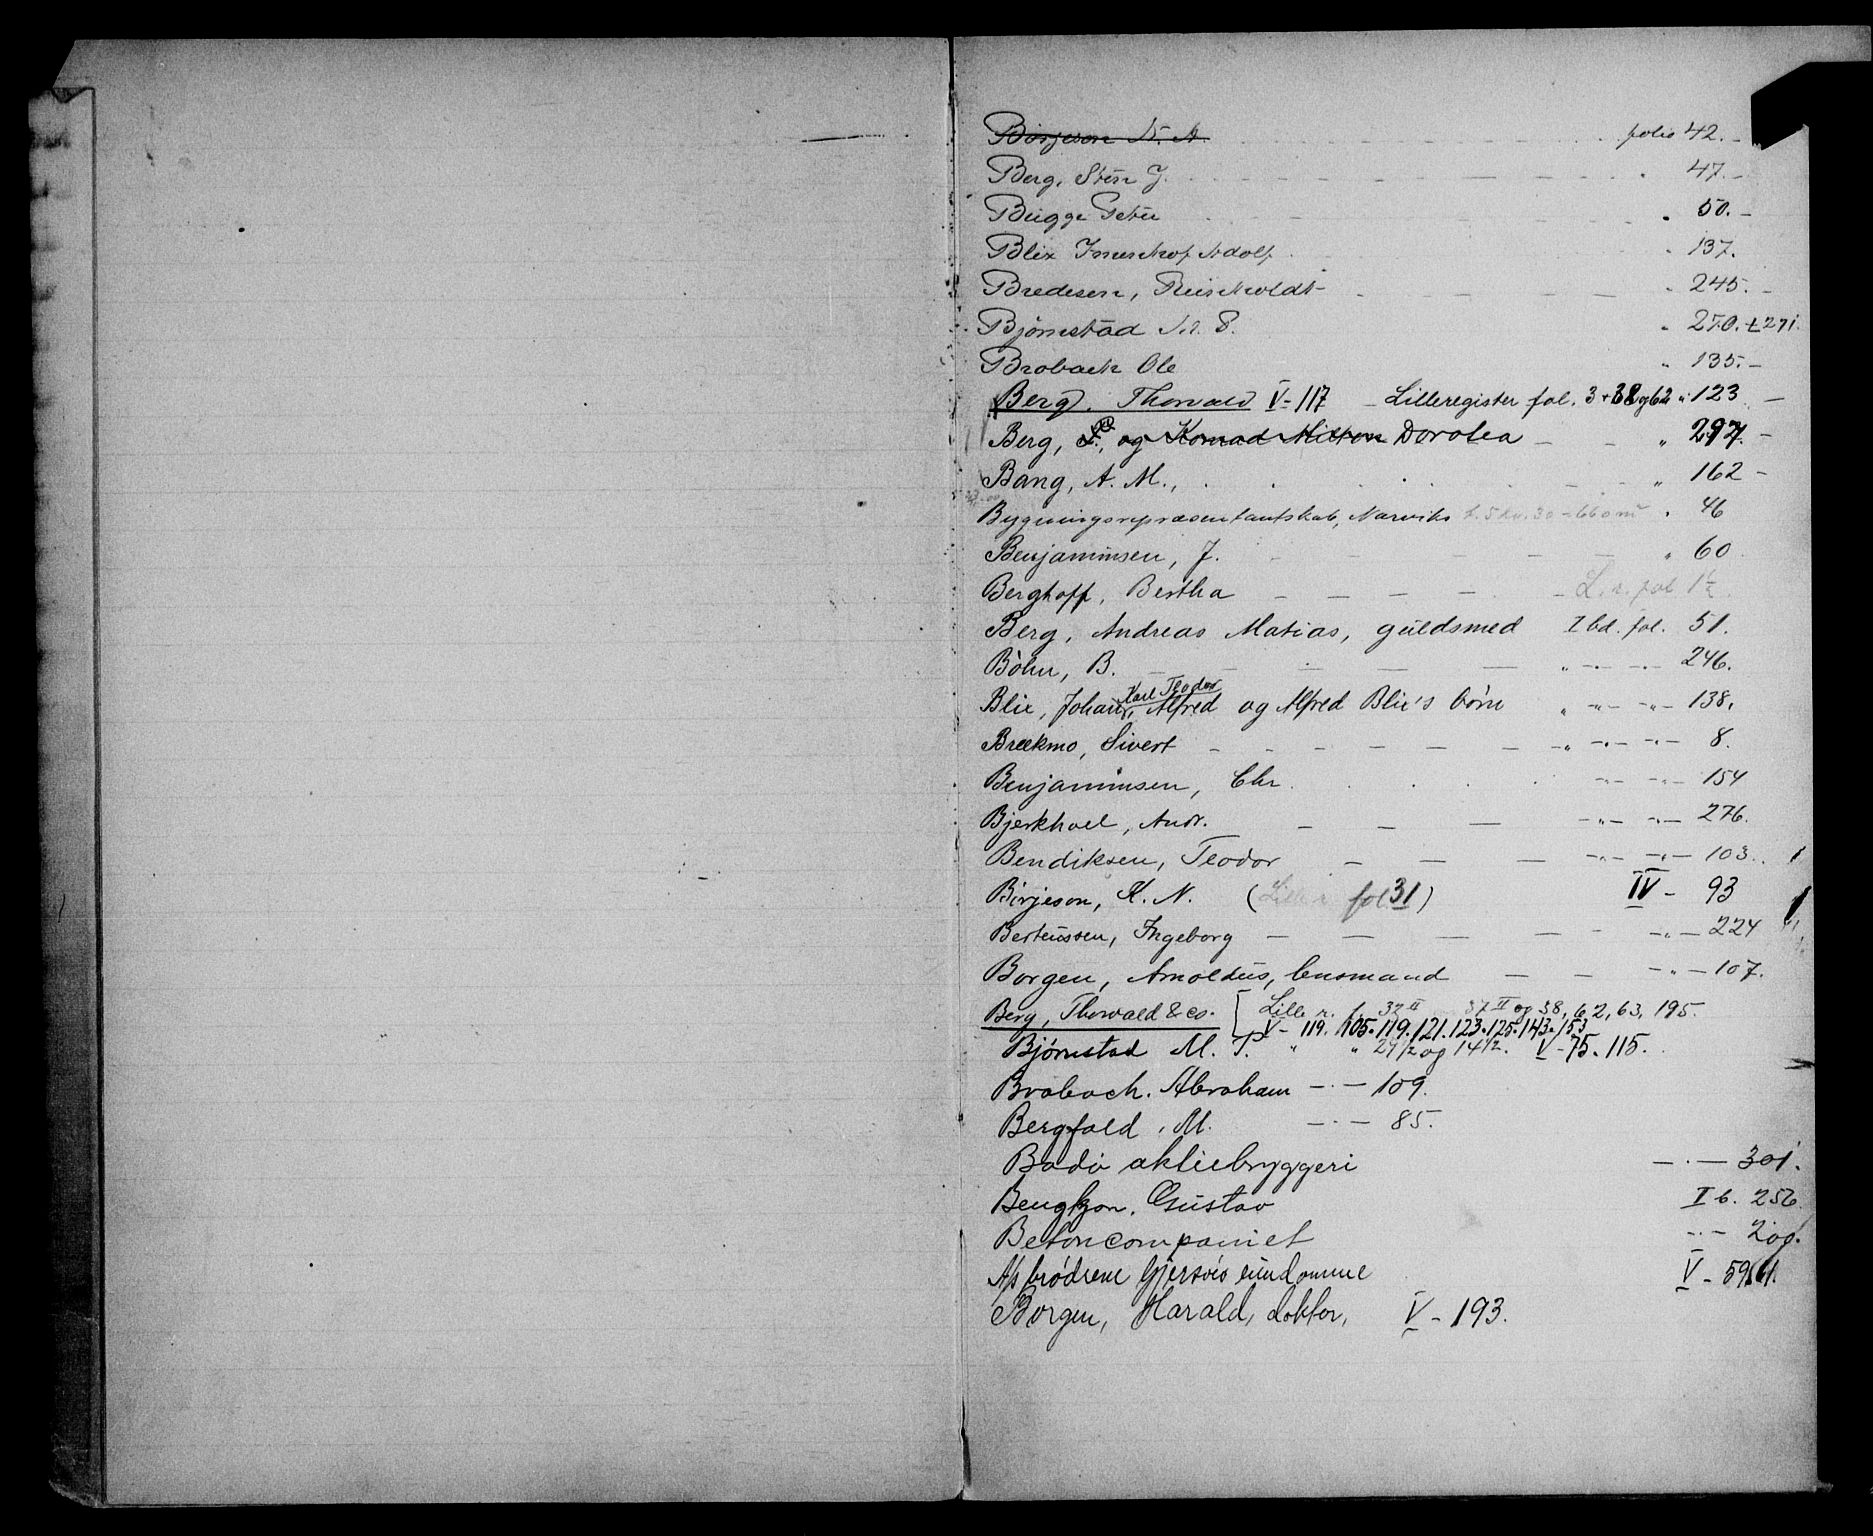 Börjeson K. N. folio 42.
Berg, Sten J. " 47.
Bugge Peter " 50.
Blix Adolf " 137.
Bredesen, Reinholdt " 245.
Bjørnestad " 270. + 271.
Broback Ole " 135.
Berg, Thorvald V - 117 Lilleregister fol. 3 + 38 og 62 " 123
Berg, og Konrad Milton Dorotea " 297.
Bang, A. M., " 162
Bygningsrepræsentantskab, Narviks " 46
Benjaminsen, J. " 60
Berghoff, Bertha L. r. fol 1½
Berg, Andreas Matias, guldsmed I bd. fol. 51.
Böhn, B. " -"- -"- 246.
Karl Teodor
Blix, Johan, Alfred og Alfred Blix's børn " -"- -"- 138.
Brækmo, Sivert " -"- -"- 8.
Benjaminsen, Chr. -"- -"- 154
Bjerkhoel, Andr. -"- -"- 276.
Bendiksen, Teodor -"- -"- 103.
Börjeson, K. N. (Lille r. fol 31) IV - 93
Berteussen, Ingeborg -"- 224
Borgen, Arnoldus, lensmand -"- 107.
Berg, Thorvald & co. [ Lille r. f. 32 II 37 II og 38, 62, 63, 195.
V - 119. 105. 119. 121. 123. 125. 143. 153
Bjørnstad M. P. " " 29½ og 14½. V - 75. 115.
Broback. Abraham -"- 109.
Bergfald, M. -"- 85.
Bodö aktiebryggeri -"- 301.
Bengtzon, Gustav I b. 256
Betoncompaniet -"- 200.
A/s brødrene Gjersvies eiendomme V - 59, 61.
Borgen, Harald, doktor, V - 193.